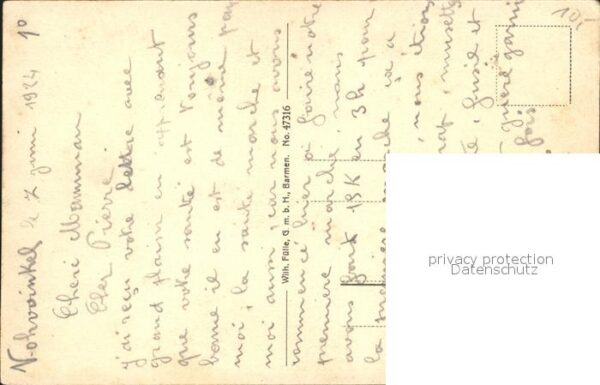 Vohwinkel le 7 juin 1924
Cheri Mamman
Cher Pierre
j'ai reçu votre lettre avec
grand plaisir en apprenant
que votre santé est toujours
bonne il en est de même pour
moi, la santé marche et
moi aussi, car nous avons
commencé hier à faire notre
première marche, nous
avons fait 18 K en 3h pour
la première marche ça a
nous étions
musette
Wilh. Fülle, G. m. b. H., Barmen. No. 47316
10,-
privacy protection
Datenschutz